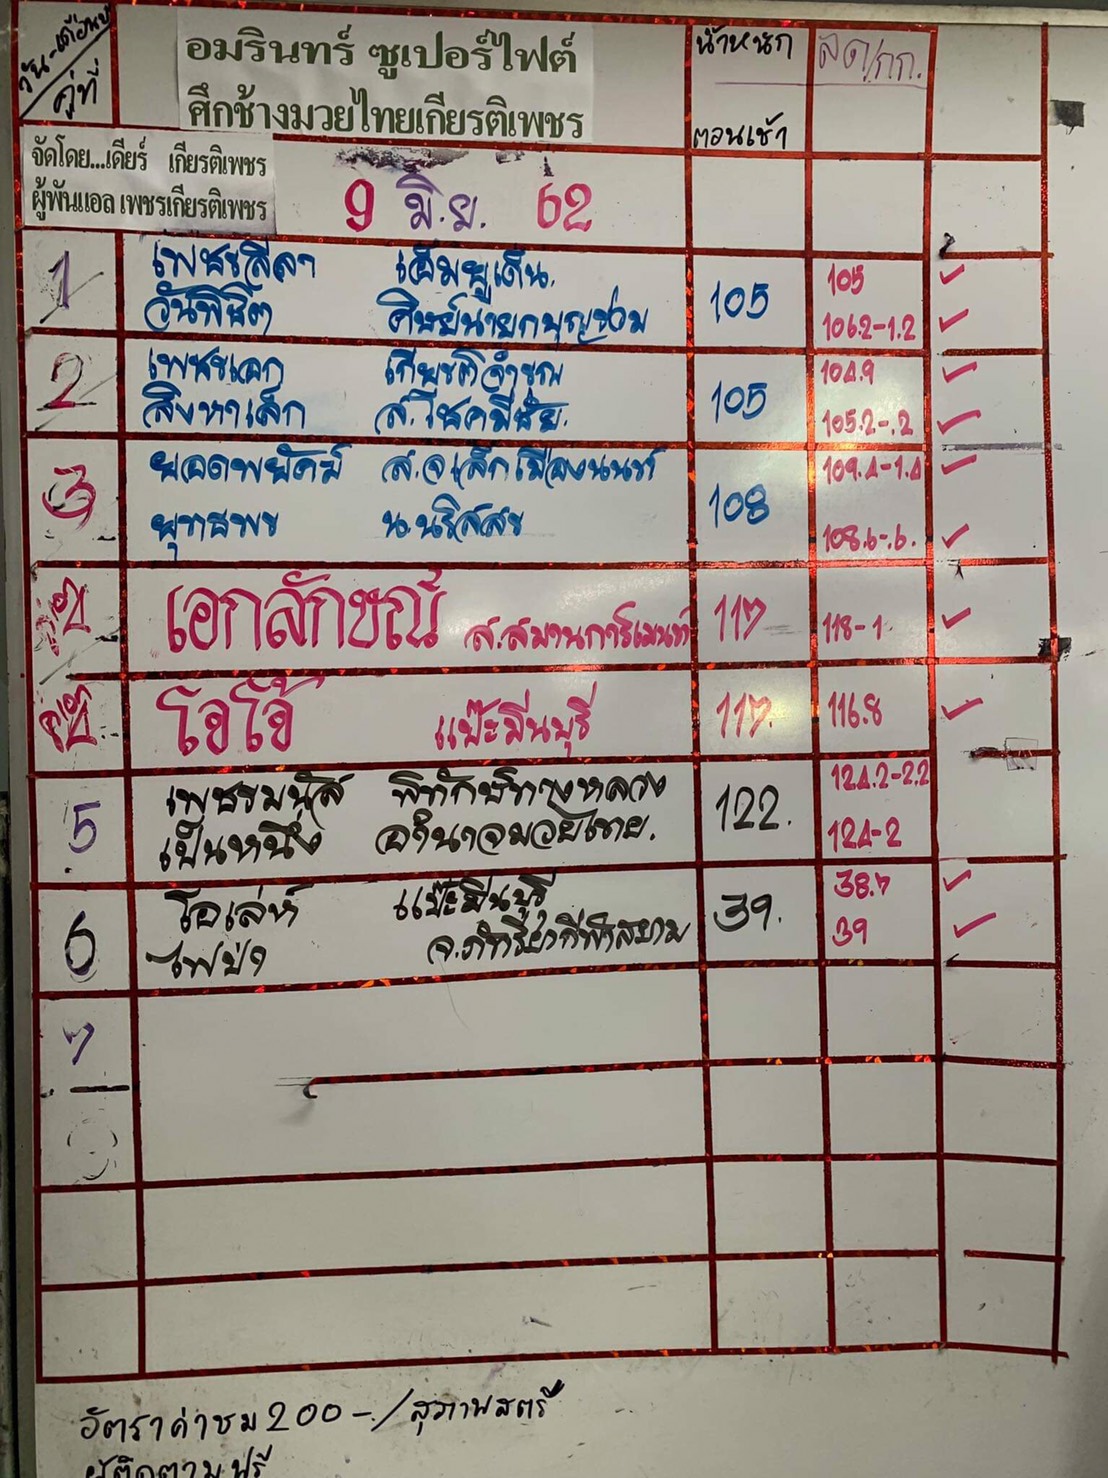 วัน-เดือน-ปี
คู่ที่
อมรินทร์ ซูเปอร์ไฟต์
ศึกช้างมวยไทยเกียรติเพชร
น้ำหนัก
ตอนเช้า
ลด/กก.
จัดโดย...เดียร์ เกียรติเพชร
ผู้พันแอล เพชรเกียรติเพชร
9 มิ.ย. 62
1
เพชรลีลา เอ็มยูเด็น.
วันพิชิต ศิษย์นายกบุญช่วม
105
105
106.2-1.2
2
เพชรเอก เกียรติจำรูญ
สิงหาเล็ก ส.โชคมีชัย.
105
104.9
105.2-.2
3
ยอดพยัคฆ์ ส.จ.เล็กเมืองนนท์
ยุทธพร น.นริสสร
108
109.4-1.4
108.6-.6.
คู่เอก
เอกลักษณ์ ส.สมานการ์เมนท์
117
118-1
โอโอ้ แป๊ะมีนบุรี
117.
116.8
5
เพชรมนัส พิทักษ์ทางหลวง
เป็นหนึ่ง อำนาจมวยไทย.
122.
124.2-2.2
124-2
6
โอเล่ห์ แป๊ะมีนบุรี
ไฟป่า
39.
38.7
39
7
อัตราค่าชม 200-./สุภาพสตรี
ผู้ติดตาม ฟรี